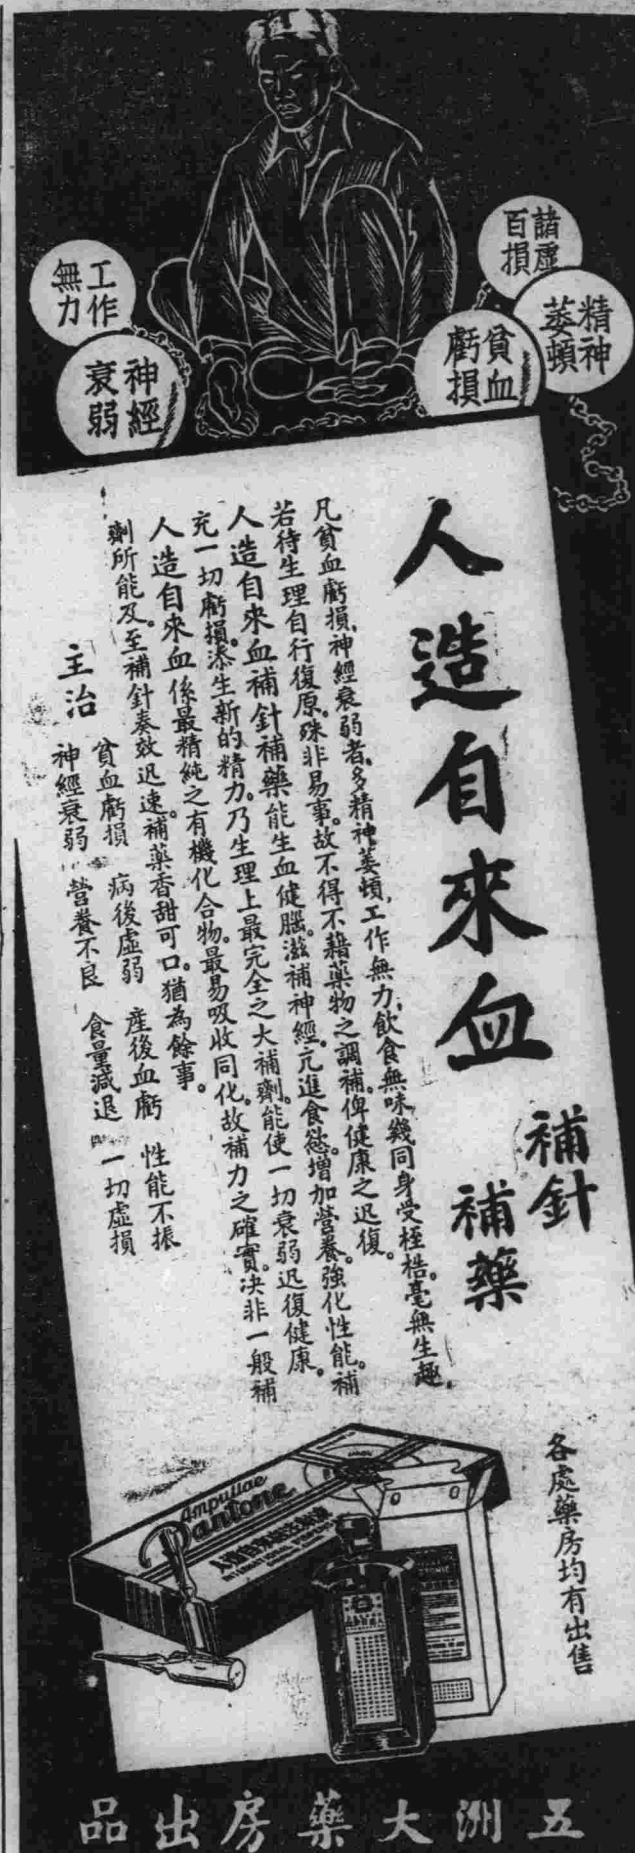 諸虛
百損
精神
萎頓
貧血
虧損
工作
無力
神經
衰弱
人造自來血
補針
補藥
凡貧血虧損、神經衰弱者。多精神萎頓、工作無力、飲食無味幾同身受桎梏。毫無生趣。
若待生理自行復原。殊非易事。故不得不藉藥物之調補。俾健康之迅復。
人造自來血補針補藥能生血健腦。滋補神經。亢進食慾。增加營養。強化性能。補
充一切虧損。添生新的精力。乃生理上最完全之大補劑。能使一切衰弱迅復健康。
人造自來血係最精純之有機化合物。最易吸收同化。故補力之確實。決非一般補
劑所能及。至補針奏效迅速。補藥香甜可口。猶為餘事。
主治
貧血虧損 病後虛弱 產後血虧 性能不振
神經衰弱 營養不良 食量減退 一切虛損
各處藥房均有出售
Ampullae
Santone
五洲大藥房出品